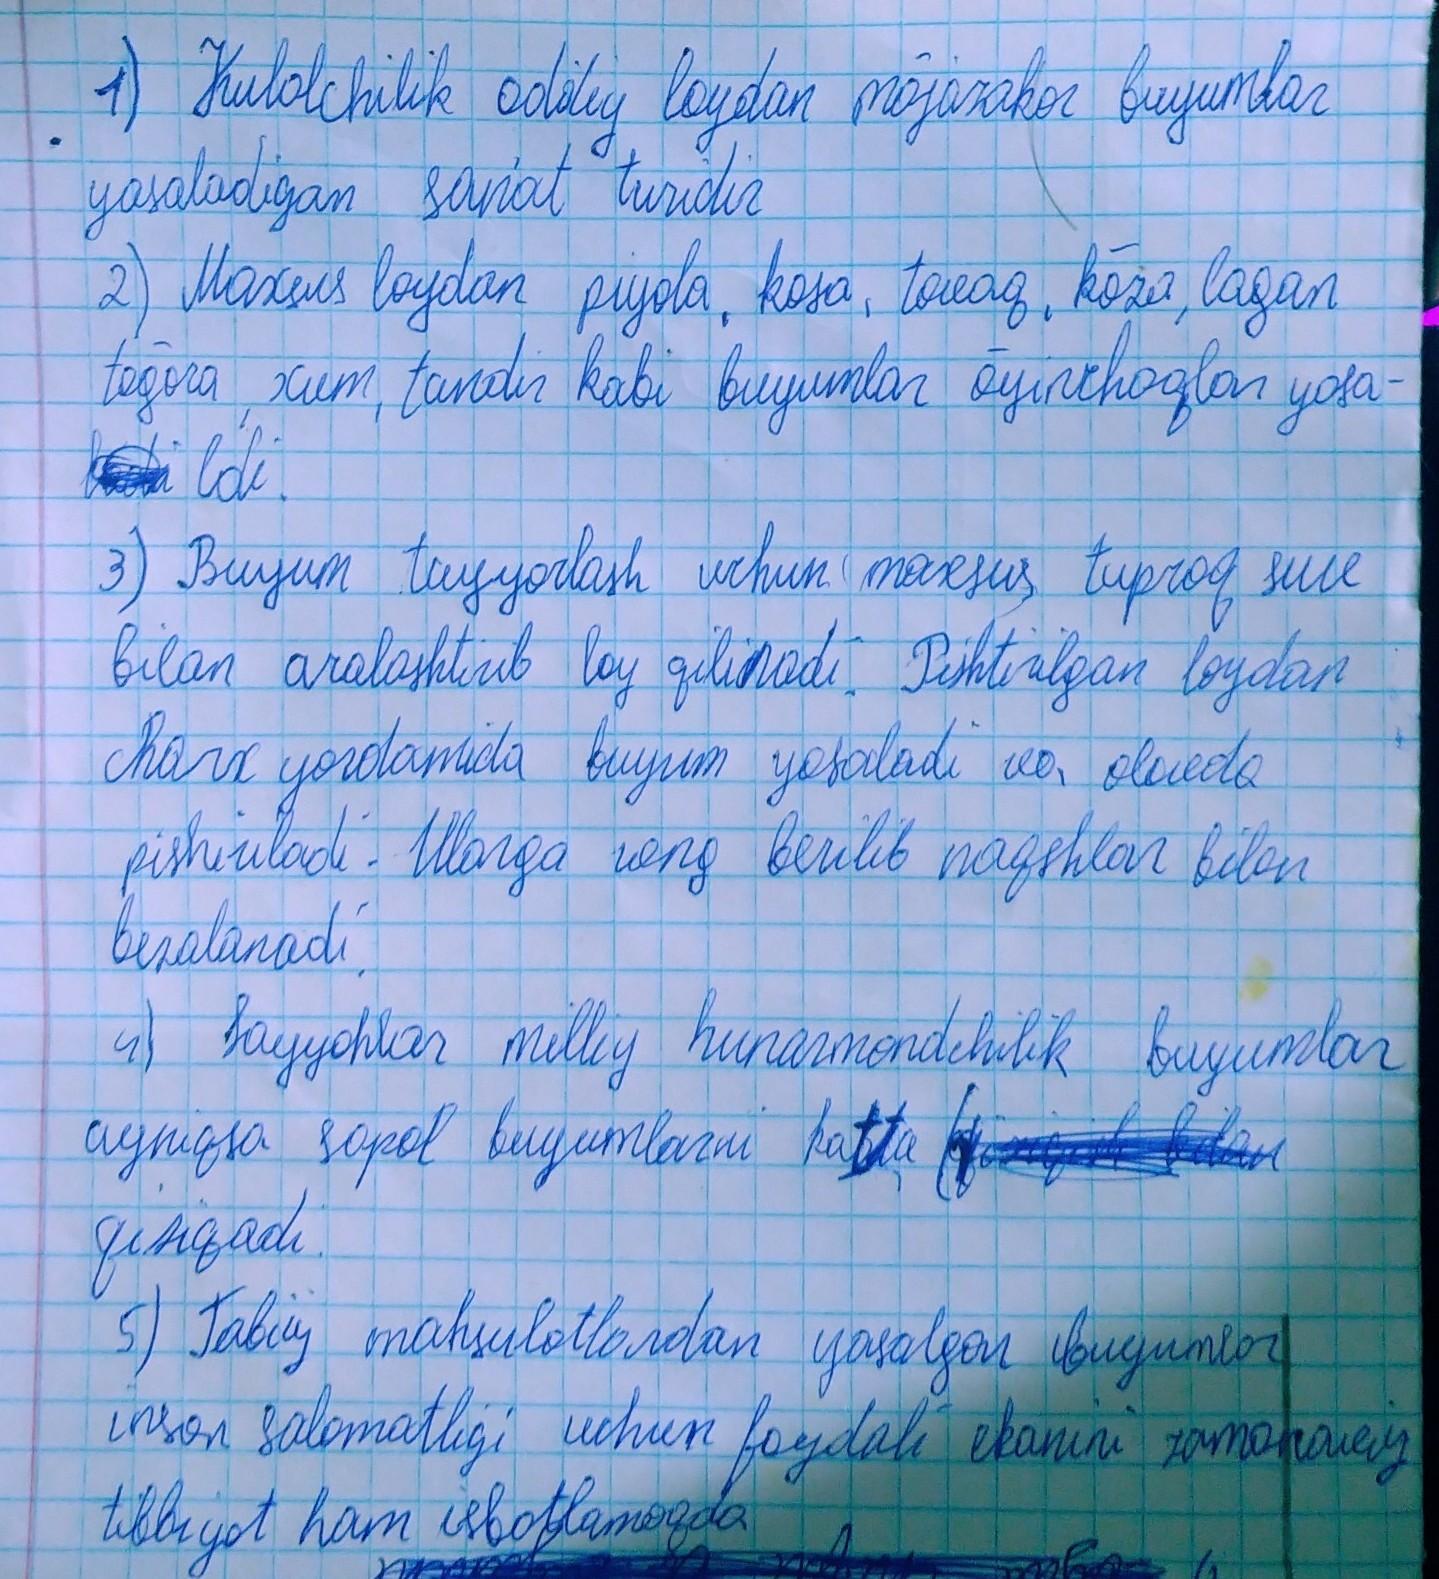 1) Kulolchilik oddiy loydan mōjizakor buyumlar
yasaladigan san'at turidir
2) Maxsus loydan piyola, kosa, tovoq, kōza, lagan
toğora, xum, tandir kabi buyumlar ōyinchoqlar yasa-
ldi.
3) Buyum tayyorlash uchun maxsus tuproq suv
bilan aralashtirib loy qilinadi. Pishtirilgan loydan
charx yordamida buyum yasaladi va olovda
pishiriladi. Ularga rang berilib naqshlar bilan
bezalanadi.
4) Sayyohlar milliy hunarmandchilik buyumlar
ayniqsa sopol buyumlarni katta
qiziqadi.
5) Tabiiy mahsulotlardan yasalgan buyumlar
inson salomatligi uchun foydali ekanini zamonaviy
tibbiyot ham isbotlamoqda